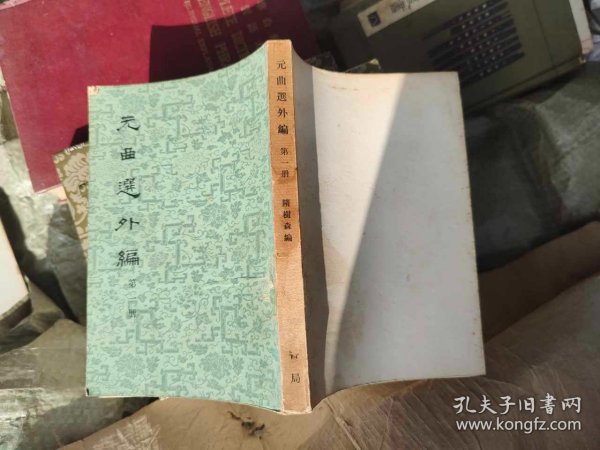 元曲選外編
第一册
元曲選外編 第一册 隋樹森編
局
孔夫子旧書网
www.kongfz.com